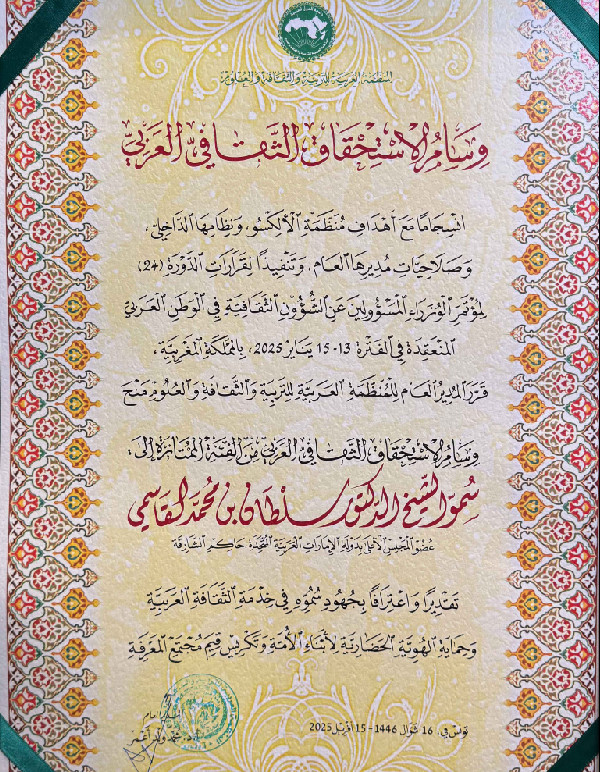 المنظمة العربية للتربية والثقافة والعلوم
وِسَامُ الِاسْتِحْقَاقِ الثَّقَافِيِّ الْعَرَبِيِّ
انْسِجَامًا مَعَ أَهْدَافِ مُنَظَّمَةِ الْأَلِكْسُو، وَنِظَامِهَا الدَّاخِلِي،
وَصَلَاحِيَّاتِ مُدِيرِهَا الْعَام، وَتَنْفِيذًا لِقَرَارَاتِ الدَّوْرَة (24)
لِمُؤْتَمَرِ الْوُزَرَاءِ الْمَسْؤُولِينَ عَنِ الشُّؤُونِ الثَّقَافِيَّةِ فِي الْوَطَنِ الْعَرَبِيّ
الْمُنْعَقِدَةِ فِي الْفَتْرَةِ 13-15 يَنَايِر 2025، بِالْمَمْلَكَةِ الْمَغْرِبِيَّةِ،
قَرَّرَ الْمُدِيرُ الْعَام لِلْمُنَظَّمَةِ الْعَرَبِيَّةِ لِلتَّرْبِيَةِ وَالثَّقَافَةِ وَالْعُلُومِ مَنْحَ
وِسَامِ الِاسْتِحْقَاقِ الثَّقَافِي الْعَرَبِيّ مِنَ الْفِئَةِ الْمُمْتَازَةِ إِلَى:
سُمُوّ الشيخ الدكتور سلطان بن محمد القاسمي
عضو المجلس الأعلى بدولة الإمارات العربية المتحدة، حاكم الشارقة
تَقْدِيرًا وَاعْتِرَافًا بِجُهُودِ سُمُوِّهِ فِي خِدْمَةِ الثَّقَافَةِ الْعَرَبِيَّةِ
وَحِمَايَةِ الْهُوِيَّةِ الْحَضَارِيَّةِ لِأَبْنَاءِ الْأُمَّةِ وَتَكْرِيسِ قِيَمِ مُجْتَمَعِ الْمَعْرِفَةِ
تونس في، 16 شوال 1446 - 15 أفريل 2025
المدير العام
أ.د. محمد ولد أعمر